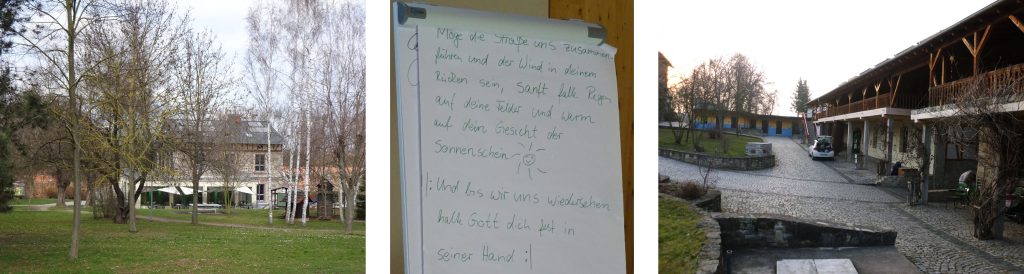 Möge die Straße uns zusammen
führen und der Wind in deinem
Rücken sein, sanft falle Regen
auf deine Felder und warm
auf dein Gesicht der
Sonnenschein
|: Und bis wir uns wiedersehen
halte Gott dich fest in
seiner Hand :|